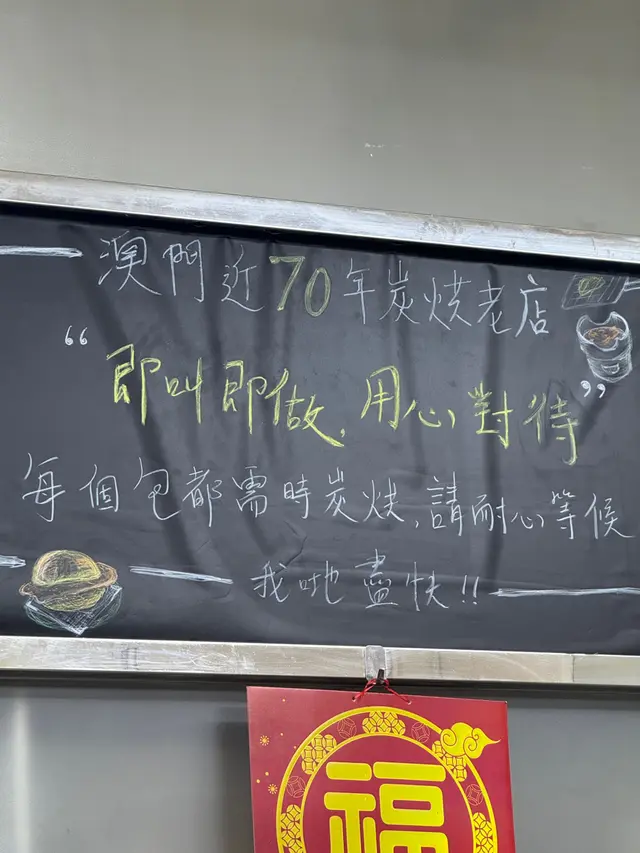 澳門近70年炭烘老店
“即叫即做，用心對待”
每個包都需時炭烘，請耐心等候
我哋盡快!!
福